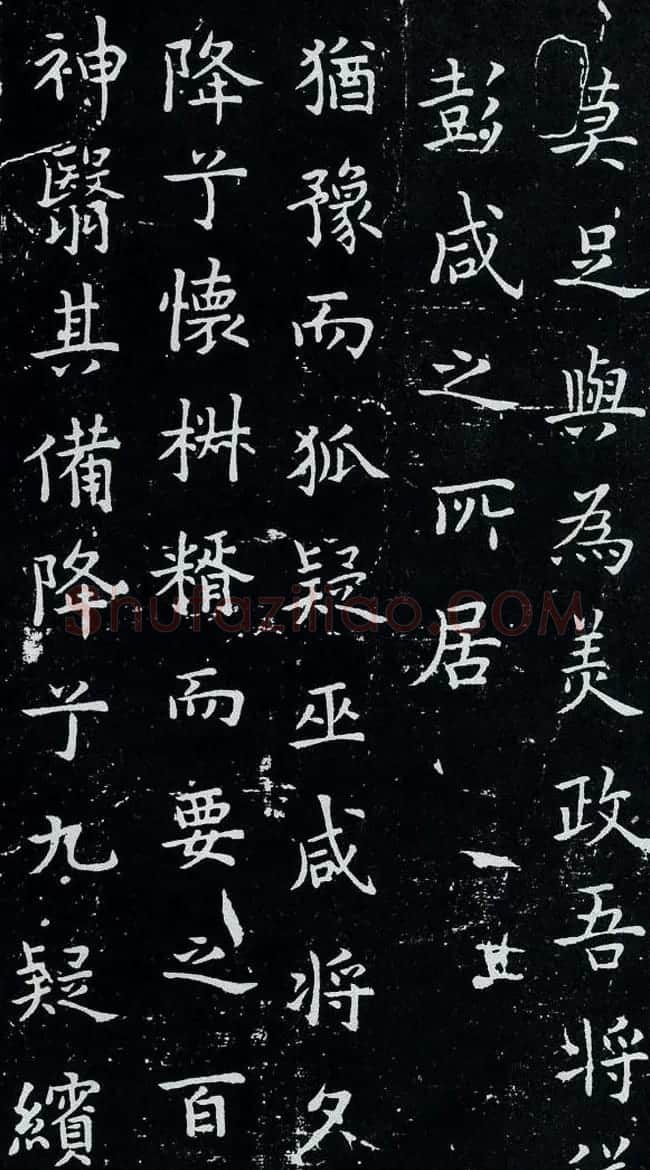 莫足與為美政吾将
彭咸之所居
猶豫而狐疑巫咸将夕
降兮懷椒糈而要之百
神翳其備降兮九疑繽
Shufaziliao.COM